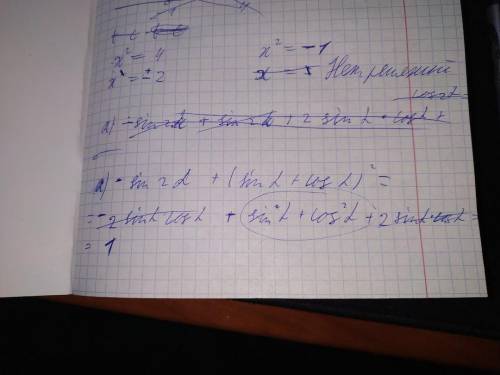 x² = 4
x² = -1
x = ± 2
x = 5 Нет решений
cos2α =
а) - sin2α + sin2α + 2 sinα · cosα +
а) - sin2α + (sinα + cosα)² =
= - 2 sinα cosα + sin²α + cos²α + 2 sinα · cosα =
= 1